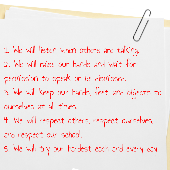 1. We will listen when others are talking.
2. We will raise our hands and wait for
permission to speak or be dismissed.
3. We will keep our hands, feet and objects to
ourselves at all times.
4. We will respect others, respect ourselves,
and respect our school.
5. We will try our hardest each and every day.